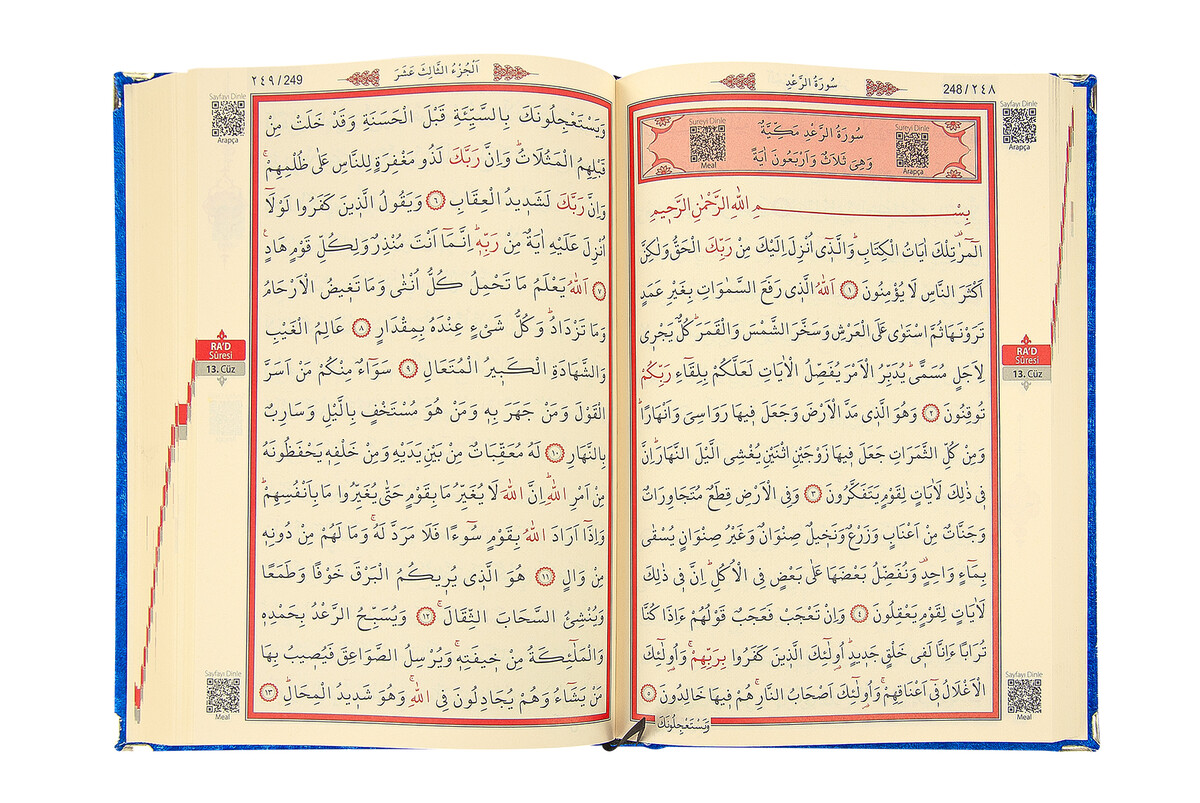 248/٢٤٨
سُورَةُ الرَّعْدِ
Sayfayı Dinle
Arapça
Sureyi Dinle
Meal
سُورَةُ الرَّعْدِ مَكِّيَّةٌ
وَهِىَ ثَلَاثٌ وَاَرْبَعُونَ اٰيَةً
Sureyi Dinle
Arapça
بِسْمِ اللّٰهِ الرَّحْمٰنِ الرَّحٖيمِ
الٓمٓرٰ تِلْكَ اٰيَاتُ الْكِتَابِ وَالَّذٖٓى اُنْزِلَ اِلَيْكَ مِنْ رَبِّكَ الْحَقُّ وَلٰكِنَّ
اَكْثَرَ النَّاسِ لَا يُؤْمِنُونَ ١ اَللّٰهُ الَّذٖى رَفَعَ السَّمٰوَاتِ بِغَيْرِ عَمَدٍ
تَرَوْنَهَا ثُمَّ اسْتَوٰى عَلَى الْعَرْشِ وَسَخَّرَ الشَّمْسَ وَالْقَمَرَ كُلٌّ يَجْرٖى
لِاَجَلٍ مُسَمًّى يُدَبِّرُ الْاَمْرَ يُفَصِّلُ الْاٰيَاتِ لَعَلَّكُمْ بِلِقَٓاءِ رَبِّكُمْ
تُوقِنُونَ ٢ وَهُوَ الَّذٖى مَدَّ الْاَرْضَ وَجَعَلَ فٖيهَا رَوَاسِىَ وَاَنْهَارًا
وَمِنْ كُلِّ الثَّمَرَاتِ جَعَلَ فٖيهَا زَوْجَيْنِ اثْنَيْنِ يُغْشِى الَّيْلَ النَّهَارَ اِنَّ
فٖى ذٰلِكَ لَاٰيَاتٍ لِقَوْمٍ يَتَفَكَّرُونَ ٣ وَفِى الْاَرْضِ قِطَعٌ مُتَجَاوِرَاتٌ
وَجَنَّاتٌ مِنْ اَعْنَابٍ وَزَرْعٌ وَنَخٖيلٌ صِنْوَانٌ وَغَيْرُ صِنْوَانٍ يُسْقٰى
بِمَٓاءٍ وَاحِدٍ وَنُفَضِّلُ بَعْضَهَا عَلٰى بَعْضٍ فِى الْاُكُلِ اِنَّ فٖى ذٰلِكَ
لَاٰيَاتٍ لِقَوْمٍ يَعْقِلُونَ ٤ وَاِنْ تَعْجَبْ فَعَجَبٌ قَوْلُهُمْ ءَاِذَا كُنَّا
تُرَابًا ءَاِنَّا لَفٖى خَلْقٍ جَدٖيدٍ اُو۬لٰٓئِكَ الَّذٖينَ كَفَرُوا بِرَبِّهِمْ وَاُو۬لٰٓئِكَ
الْاَغْلَالُ فٖٓى اَعْنَاقِهِمْ وَاُو۬لٰٓئِكَ اَصْحَابُ النَّارِ هُمْ فٖيهَا خَالِدُونَ ٥
وَيَسْتَعْجِلُونَكَ
RA'D
Sûresi
13. Cüz
Sayfayı Dinle
Meal
اَلْجُزْءُ الثَّالِثَ عَشَرَ
٢٤٩/249
Sayfayı Dinle
Arapça
وَيَسْتَعْجِلُونَكَ بِالسَّيِّئَةِ قَبْلَ الْحَسَنَةِ وَقَدْ خَلَتْ مِنْ
قَبْلِهِمُ الْمَثُلَاتُ وَاِنَّ رَبَّكَ لَذُو مَغْفِرَةٍ لِلنَّاسِ عَلٰى ظُلْمِهِمْ
وَاِنَّ رَبَّكَ لَشَدٖيدُ الْعِقَابِ ٦ وَيَقُولُ الَّذٖينَ كَفَرُوا لَوْلَٓا
اُنْزِلَ عَلَيْهِ اٰيَةٌ مِنْ رَبِّهٖ اِنَّمَٓا اَنْتَ مُنْذِرٌ وَلِكُلِّ قَوْمٍ هَادٍ
٧ اَللّٰهُ يَعْلَمُ مَا تَحْمِلُ كُلُّ اُنْثٰى وَمَا تَغٖيضُ الْاَرْحَامُ
وَمَا تَزْدَادُ وَكُلُّ شَىْءٍ عِنْدَهُ بِمِقْدَارٍ ٨ عَالِمُ الْغَيْبِ
وَالشَّهَادَةِ الْكَبٖيرُ الْمُتَعَالِ ٩ سَوَٓاءٌ مِنْكُمْ مَنْ اَسَرَّ
الْقَوْلَ وَمَنْ جَهَرَ بِهٖ وَمَنْ هُوَ مُسْتَخْفٍ بِالَّيْلِ وَسَارِبٌ
بِالنَّهَارِ ١٠ لَهُ مُعَقِّبَاتٌ مِنْ بَيْنِ يَدَيْهِ وَمِنْ خَلْفِهٖ يَحْفَظُونَهُ
مِنْ اَمْرِ اللّٰهِ اِنَّ اللّٰهَ لَا يُغَيِّرُ مَا بِقَوْمٍ حَتّٰى يُغَيِّرُوا مَا بِاَنْفُسِهِمْ
وَاِذَٓا اَرَادَ اللّٰهُ بِقَوْمٍ سُٓوءًا فَلَا مَرَدَّ لَهُ وَمَا لَهُمْ مِنْ دُونِهٖ
مِنْ وَالٍ ١١ هُوَ الَّذٖى يُرٖيكُمُ الْبَرْقَ خَوْفًا وَطَمَعًا
وَيُنْشِئُ السَّحَابَ الثِّقَالَ ١٢ وَيُسَبِّحُ الرَّعْدُ بِحَمْدِهٖ
وَالْمَلٰٓئِكَةُ مِنْ خٖيفَتِهٖ وَيُرْسِلُ الصَّوَاعِقَ فَيُصٖيبُ بِهَا
مَنْ يَشَٓاءُ وَهُمْ يُجَادِلُونَ فِى اللّٰهِ وَهُوَ شَدٖيدُ الْمِحَالِ ١٣
RA'D
Sûresi
13. Cüz
Sayfayı Dinle
Meal